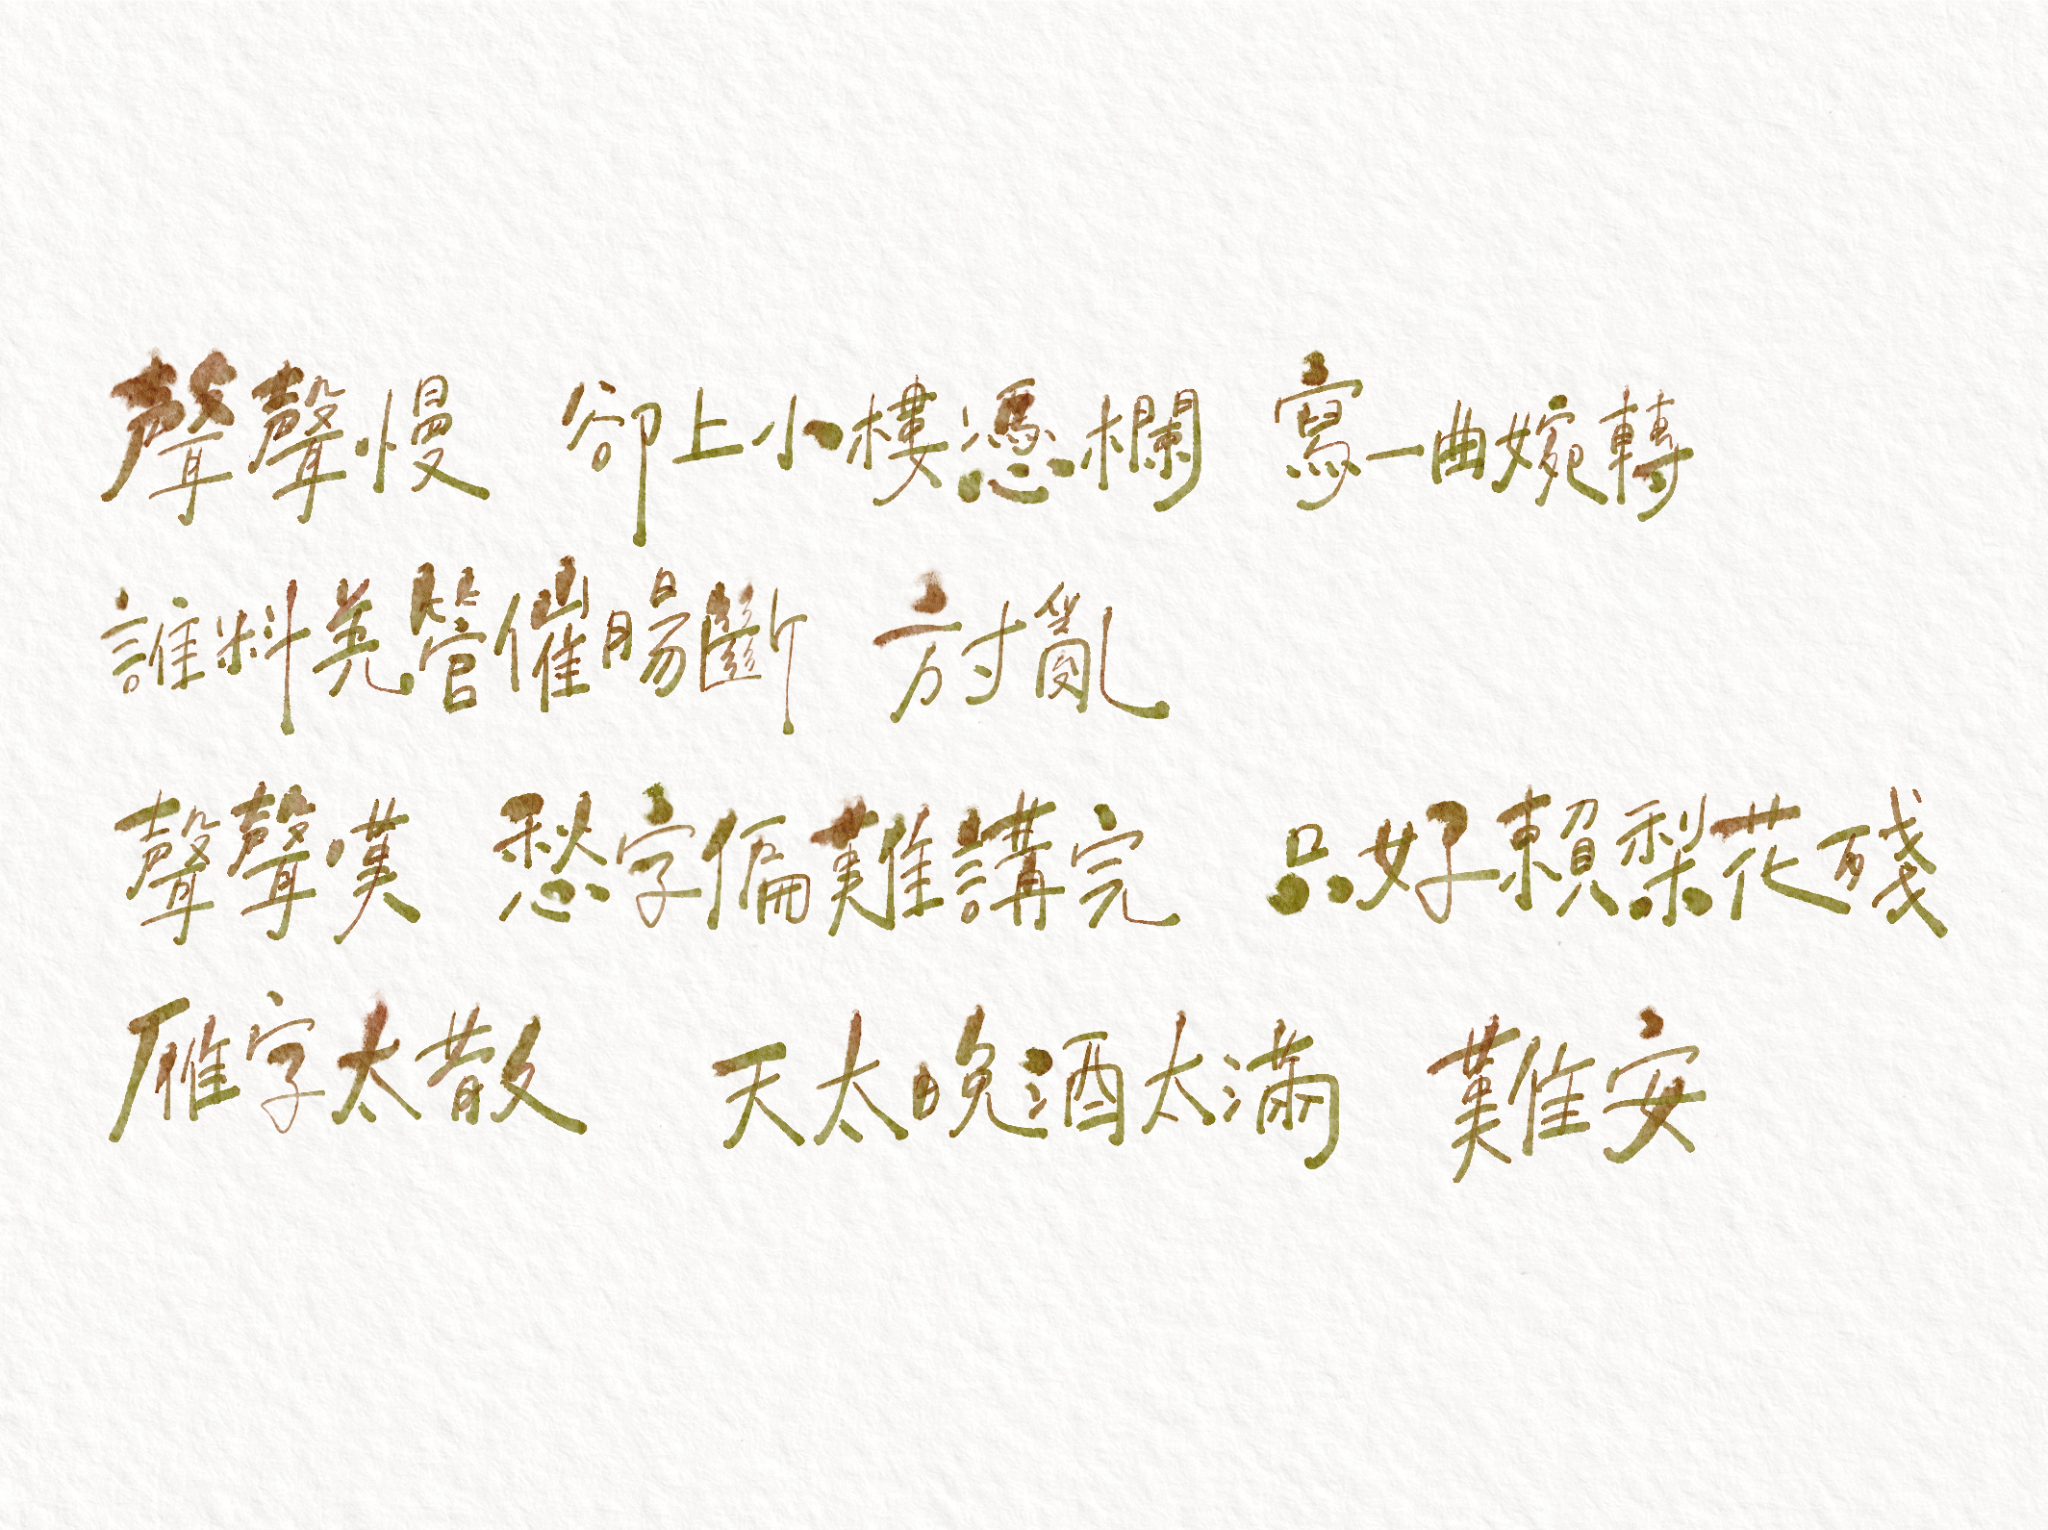 聲聲慢 卻上小樓憑欄 寫一曲婉轉
誰料羌管催腸斷 方寸亂
聲聲嘆 愁字偏難講完 只好賴梨花殘
雁字太散 天太晚酒太滿 難安